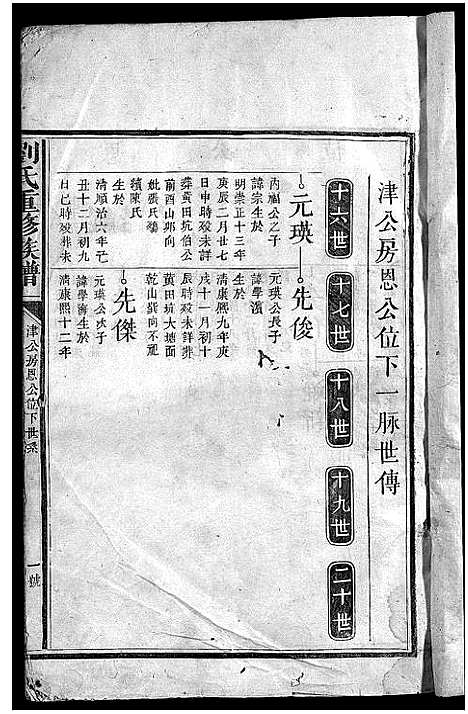 津公房恩公位下一脉世傳
十六世
十七世
十八世
十九世
二十世
元瑛
丙福公之子
諱宗生於
明崇正十三年
庚辰二月廿七
日申時殁未詳
葬黄田坑伯公
前酉山卯向
妣張氏
續陳氏
生於
清順治六年己
丑十二月初九
日巳時殁葬未
先俊
元瑛公長子
諱學濱
生於
清康熙九年庚
戌十一月初十
辰時殁未詳葬
黄田坑大塘面
乾山巽向
先傑
元瑛公次子
諱學濟生於
清康熙十二年
劉氏重修族譜
津公房恩公位下世系
一號